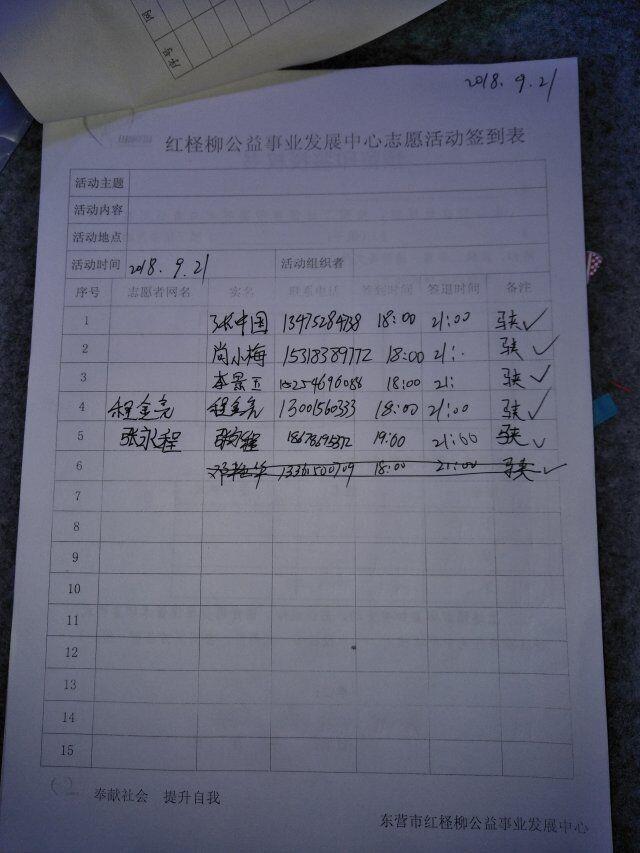 2018.9.21
红柽柳公益事业发展中心志愿活动签到表
活动主题
活动内容
活动地点
活动时间 2018.9.21 活动组织者
序号 志愿者网名 实名 联系电话 签到时间 签退时间 备注
1 张中国 13475284738 18:00 21:00 ✓
2 尚小梅 15318389772 18:00 21: ✓
3 李景玉 15254696086 18:00 21: ✓
4 程金亮 程金亮 13001560333 18:00 21:00 ✓
5 张永程 19:00 21:00 ✓
6 18:00 21:00 ✓
7
8
9
10
11
12
13
14
15
奉献社会 提升自我
东营市红柽柳公益事业发展中心